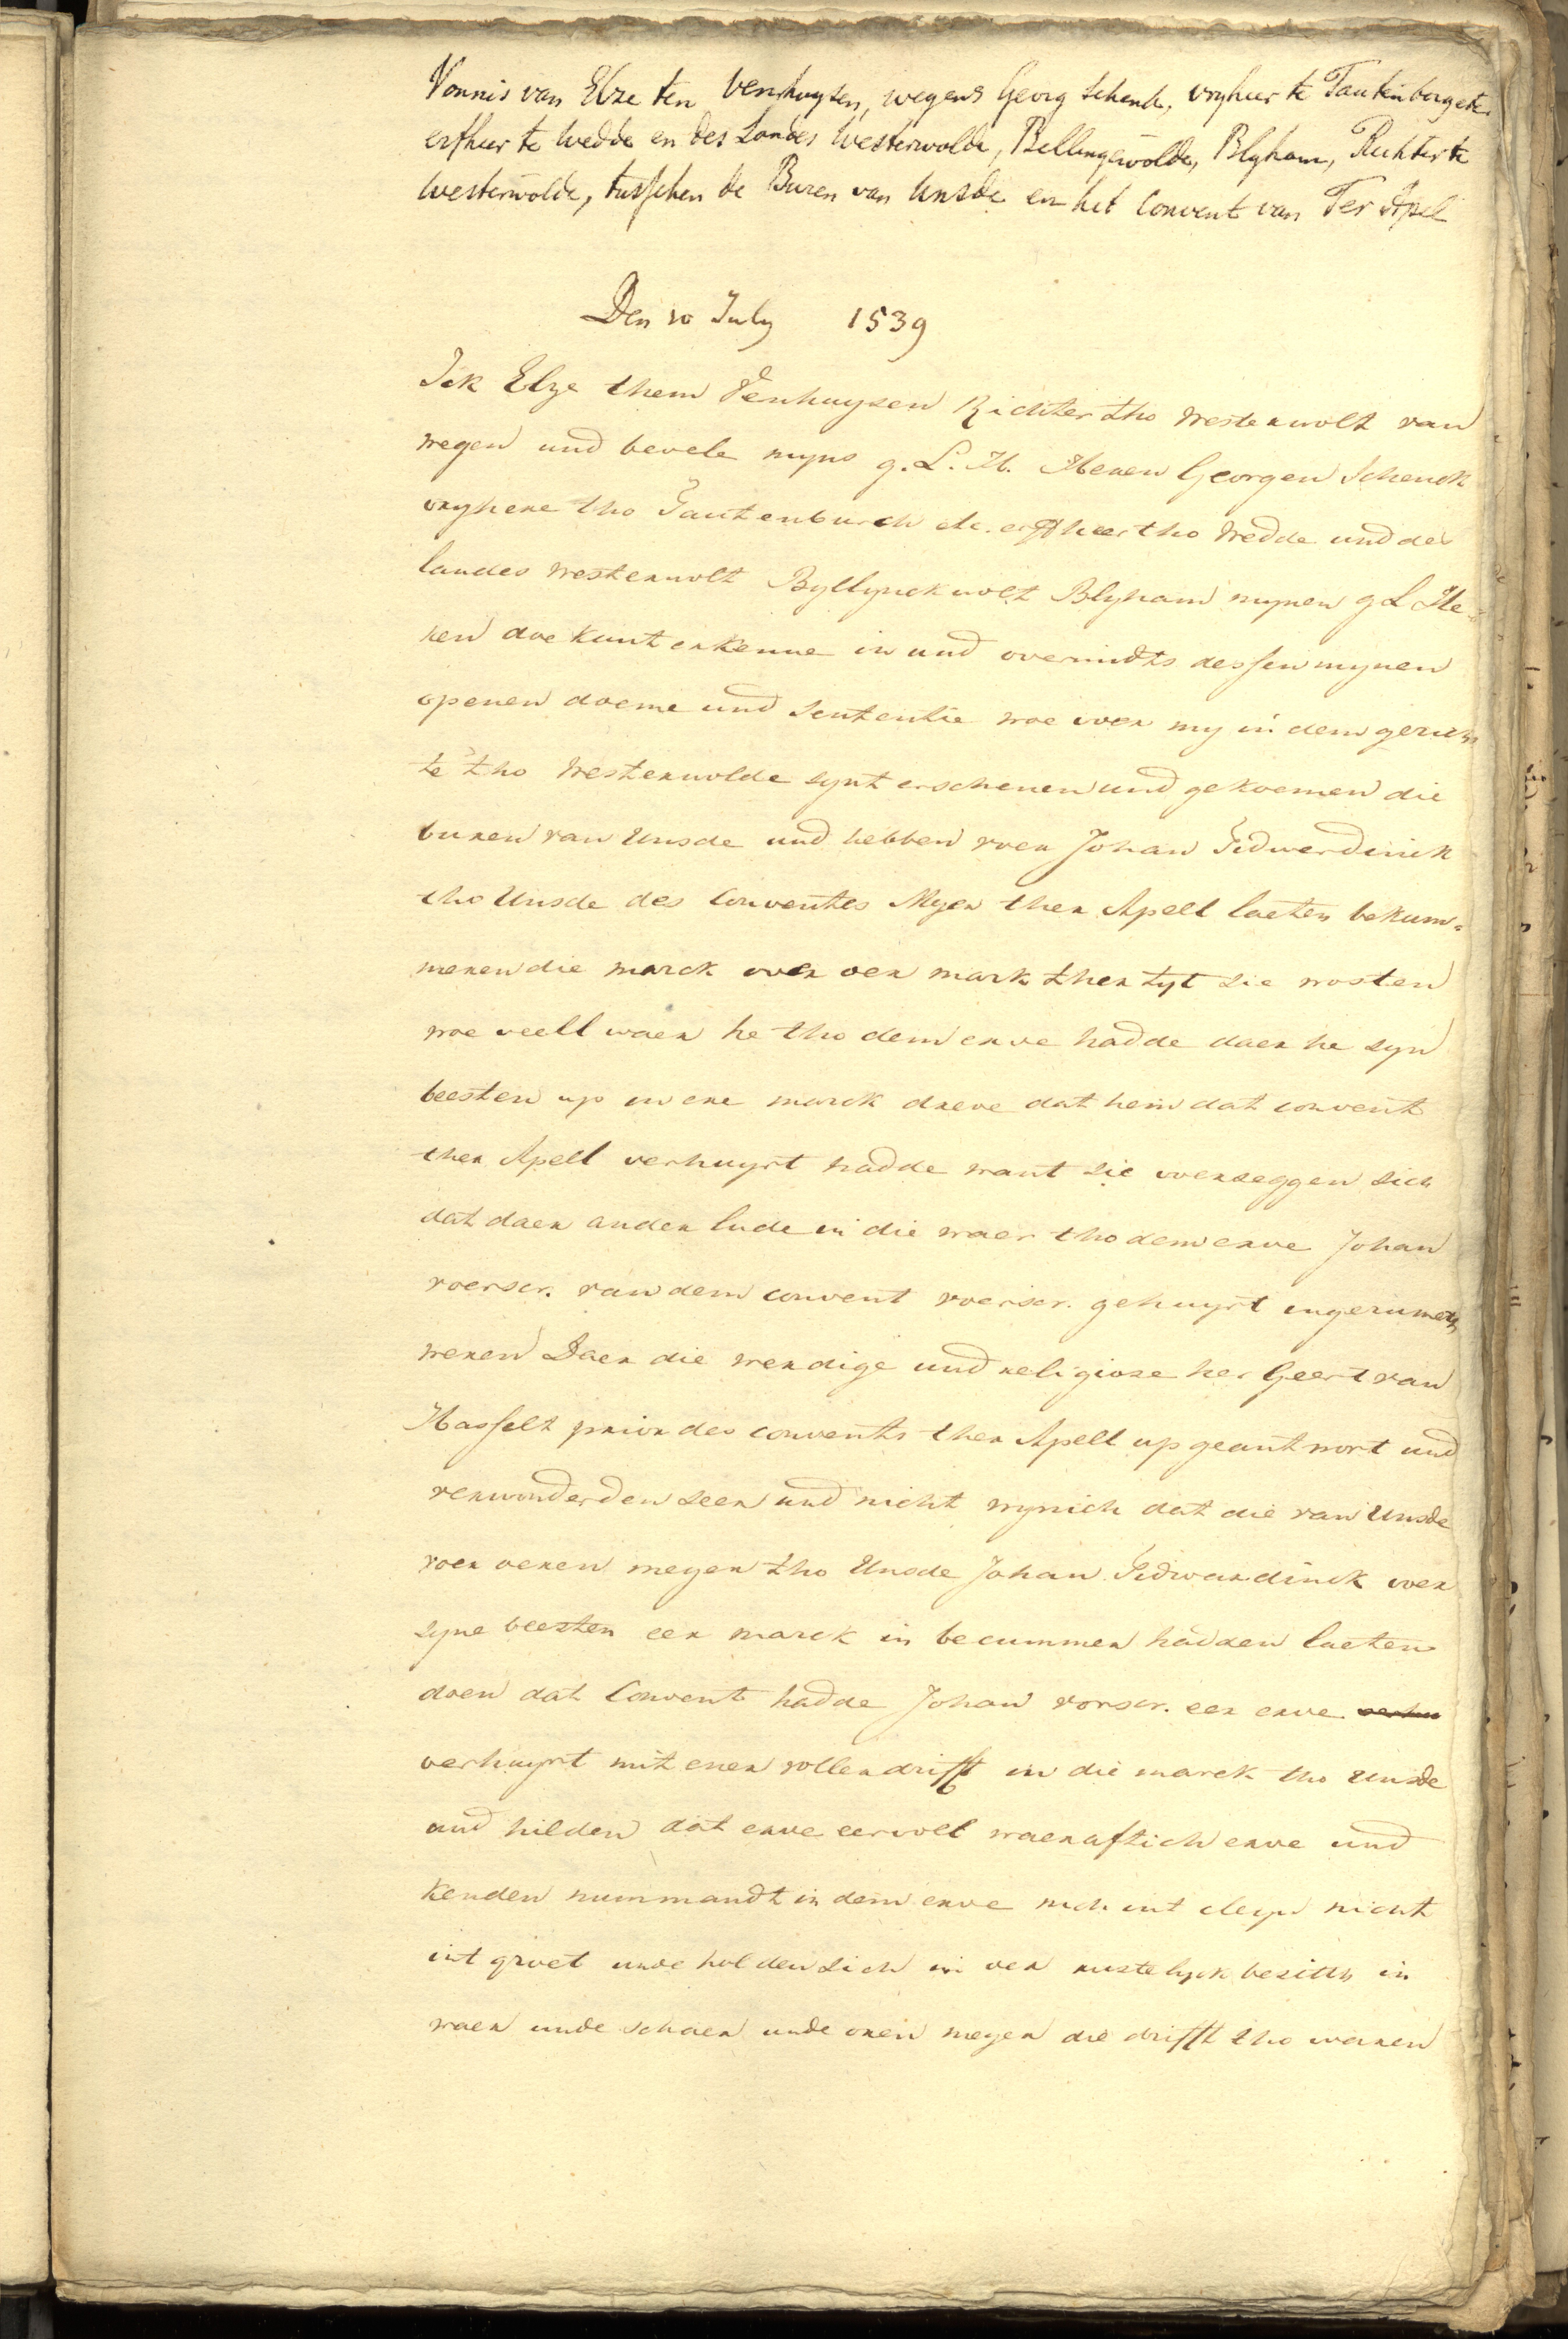 Vonnis van Elze ten Venhuysen, wegens Georg Schenck, vryheer te Tautenborg etc.
erfheer te Wedde en des Landes Westerwolde, Bellingewolde, Blyham, Richter te
Westerwolde, tusschen de Buren van Unsde en het Convent van Ter Apel
Den 10 July 1539
Ick Elze them Venhuysen Richter tho Westerwolt van
wegen und bevele myns g. L. H. Heren Georgen Schenck
vryhere tho Tautenburch etc. erffheer tho Wedde und des
landes Westerwolt Byllynckwolt Blyham mynen g L He-
ren doe kunt erkenne in und overmidts dessen mynen
openen doeme und sententie woe voer my in dem gerich
te tho Westerwolde synt erschenen und gekoemen die
buren van Unsde und hebben voer Johan Sidwerdinck
tho Unsde des Conventes Meyer ther Apell laeten bekum-
meren die marck over oer mark ther tyt sie wosten
woe veell waer he tho dem erve hadde daer he syn
beesten up in ere marck dreve dat hem dat convent
ther Apell verhuyrt hadde want sie verseggen sich
dat daer ander lude in die waer tho dem erve Johan
voerscr. van dem convent voerscr. gehuyrt ingerumeth
weren Daer die werdige und religiose her Geert van
Hasselt prior des convents ther Apell up geantwort und
verwonderden seer und nicht wynich dat die van Unsde
voer oeren meyer tho Unsde Johan Sidwardinck over
syne beesten eer marck in becummer hadden laeten
doen dat Convent hadde Johan vorscr. eer erve verhu
verhuyrt mit ener vollen drifft in die marck tho Unsde
und hilden dat erve eer voll waerafftich erve und
kenden nummandt in dem erve nich int cleyn nicht
int groet unde holden sich in oer rustelyck besitth in
waer unde schaer unde oren meyer die drifft tho waren